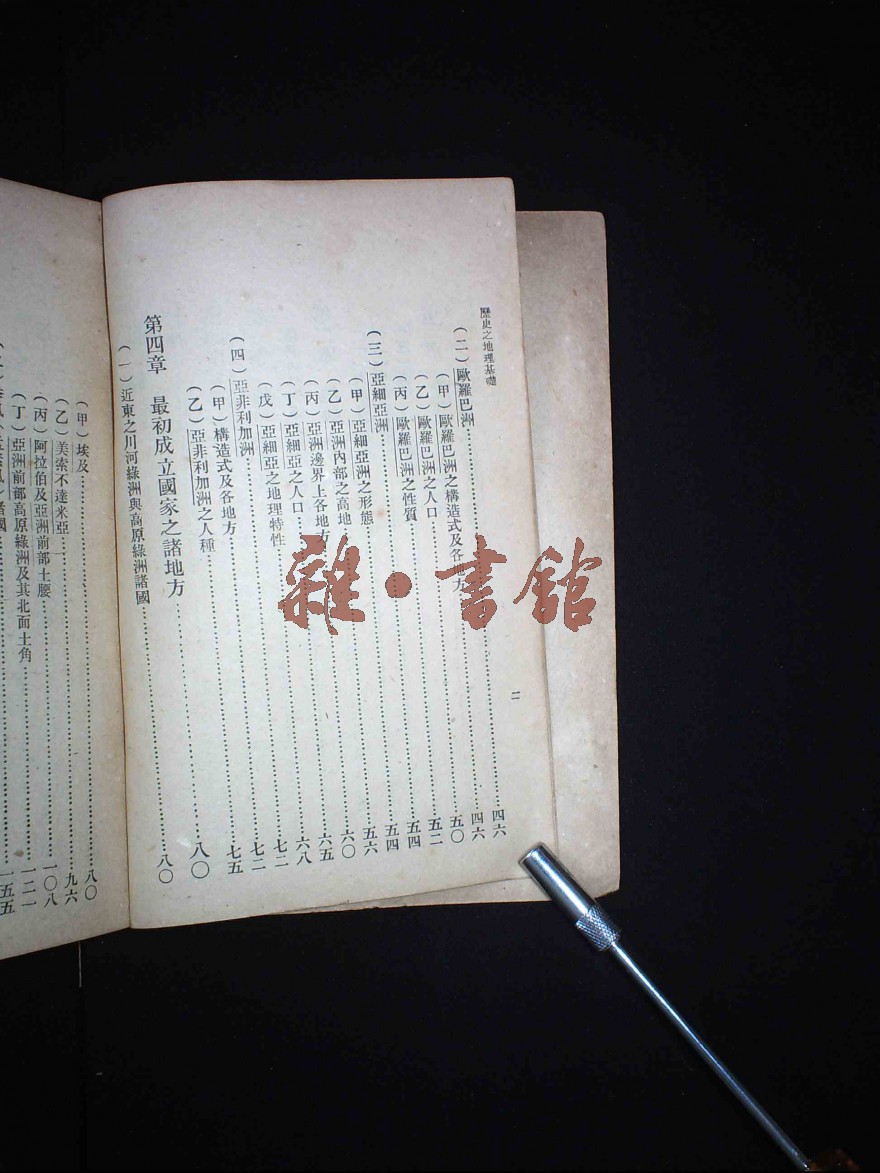 歷史之地理基礎
二
（二）歐羅巴洲……四六
（甲）歐羅巴洲之構造式及各地方……四六
（乙）歐羅巴洲之人口……五〇
（丙）歐羅巴洲之性質……五二
（三）亞細亞洲……五四
（甲）亞細亞洲之形態……五四
（乙）亞洲內部之高地……五六
（丙）亞洲邊界上各地方……六〇
（丁）亞細亞之人口……六五
（戊）亞細亞之地理特性……六八
（四）亞非利加洲……七二
（甲）構造式及各地方……七二
（乙）亞非利加洲之人種……七五
第四章 最初成立國家之諸地方……八〇
（一）近東之川河綠洲與高原綠洲諸國……八〇
（甲）埃及……八〇
（乙）美索不達米亞……九六
（丙）阿拉伯及亞洲前部土腰……一〇八
（丁）亞洲前部高原綠洲及其北面土角……一二一
一五五
雜·書館